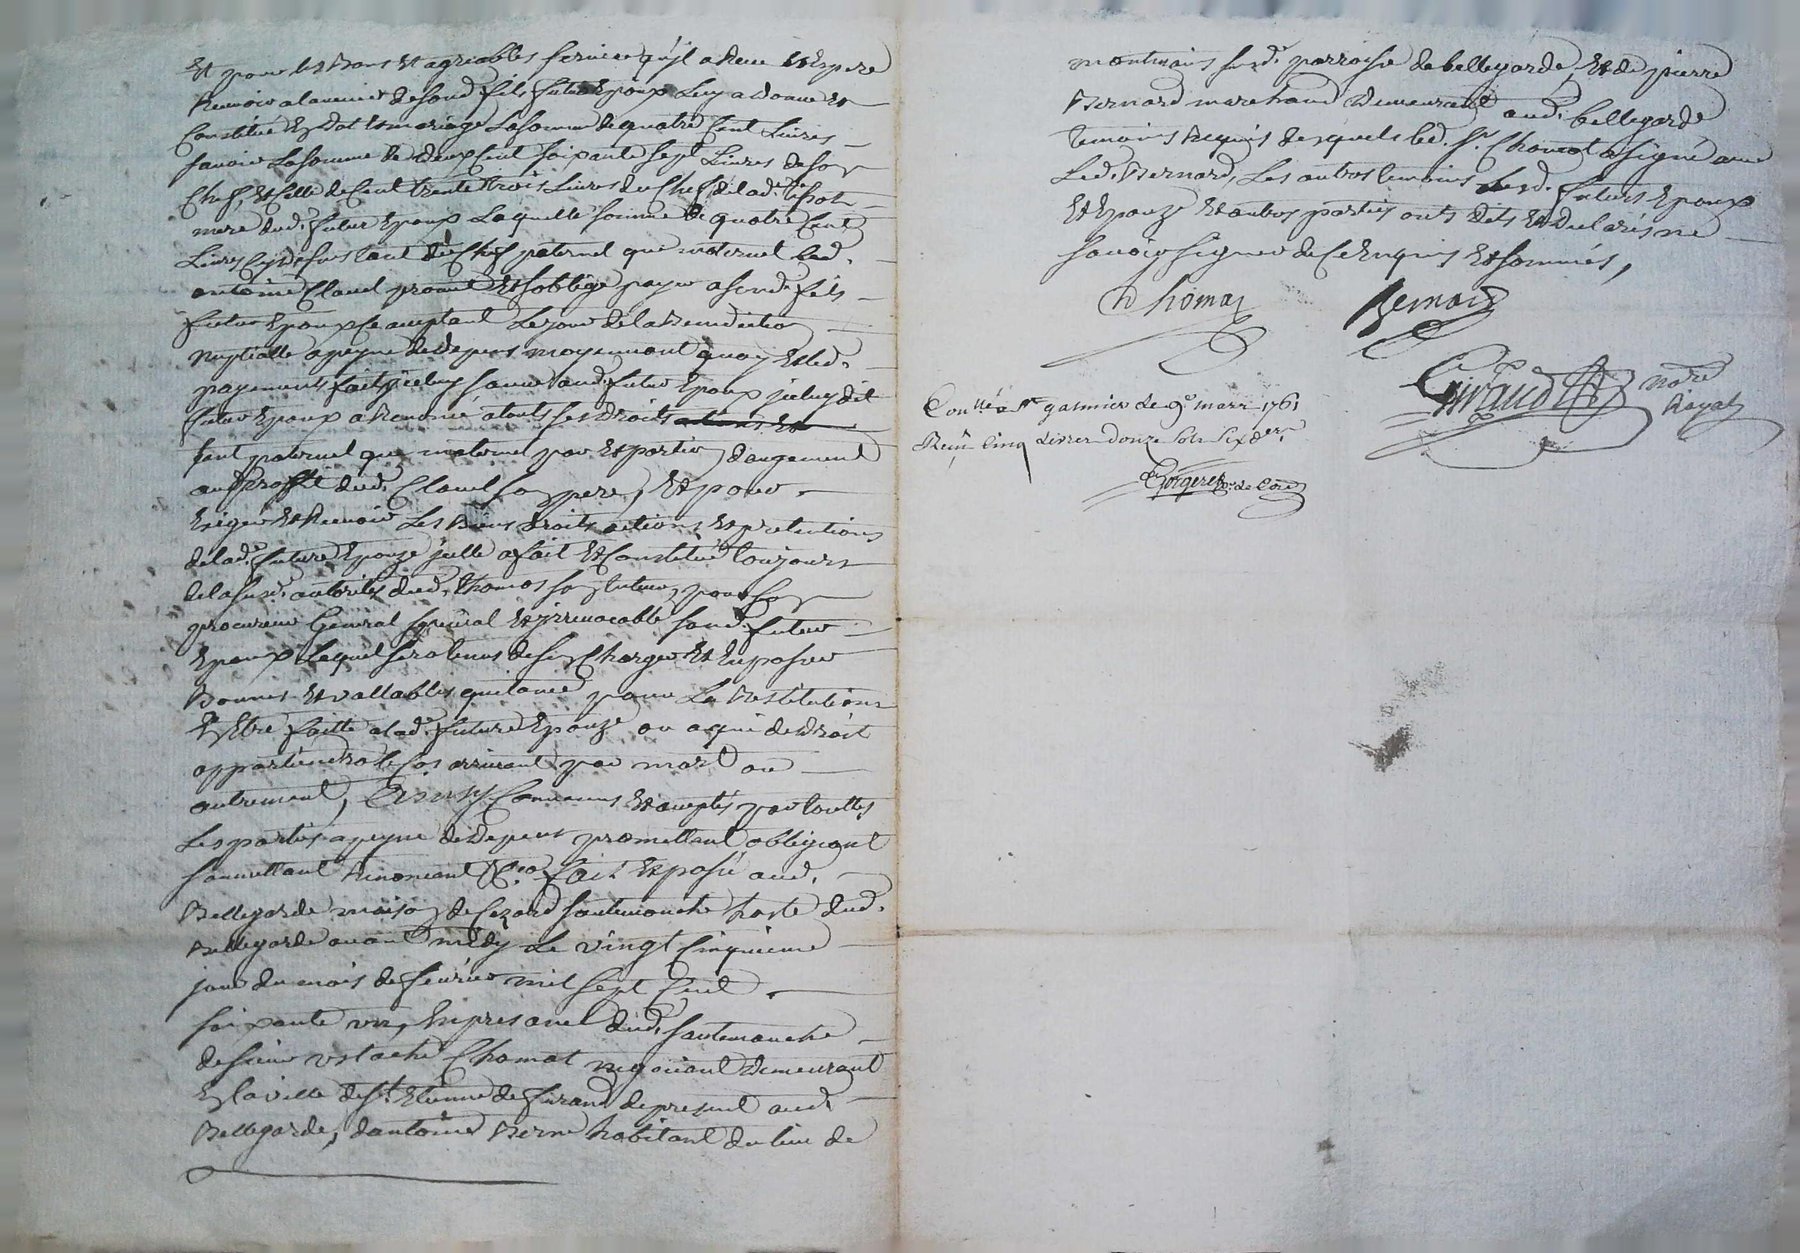 Et pour les bons et agreables services qu'il a Receu et Espere
Recevoir a lavenir de sond. fils futur Epoux Luy a donné et
Constitué En dot et mariage La somme de quatre Cent Livres
savoir La somme de deux Cent soixante sept Livres de son
Chef, et Celle de Cent trente trois Livres du Chef de lad.
mere dud. futur Epoux Laquelle somme de quatre Cent
Livres Cy dessus tant du Chef paternel que maternel led.
antoine Clauel promet et soblige payer a sond. fils
futur Epoux Comptant Le jour de la Benediction
nuptialle a peyne de depens moyennant quoy et led.
payement fait jceluy sauve aud. futur Epoux jceluy dit
futur Epoux a Renoncé a touts ses droits
tant paternel que maternel par Expertion daugement
au proffit dud. Clauel son pere, Et pour
Exiger et Recevoir Les Biens droits actions et pretentions
de lad. future Epouze jcelle a fait et Constitué toujours
de la susd. autorité dud. thomas son tuteur pour son
procureur General special et jrrevocable sond. futur
Epoux Lequel sera tenus de s'en Charger Et En passer
Bonnes et vallables quitance pour La Restitution
En Etre faitte a lad. future Epouze ou a qui de droit
appartiendra le Cas arrivant par mort ou
autrement, Ainsy Convenus et acceptés par touttes
Les parties a peyne de depens promettant obligeant
soumettant Renonceant &ca fait et passé aud.
Bellegarde maison de Cezard sautemouche hoste dud.
Bellegarde avant midy Le vingt Cinquieme
jour du mois de fevrier mil sept Cent
soixante un, En presance dud. sautemouche
de sieur ustache Chomat negociant Demeurant
En la ville de St. Etienne de furand de present aud.
Bellegarde, d'antoine Berne habitant du lieu de
montmain susd. parroisse de bellegarde, Et de pierre
Bernard marchand Demeurant aud. bellegarde
temoins Requis desquels led. sr. Chomat a signé avec
Led. Bernard, Les autres temoins Lesd. futurs Epoux
Et Epouze Et autres parties onts dits Et declarés ne
savoir signer de Ce Enquis Et sommés,
Chomat Bernard
Giraud nore
Royal
Conllé a St. galmier le 9e mars 1761
Reçu Cinq Livres Douze sols six ders.
Gorgeret